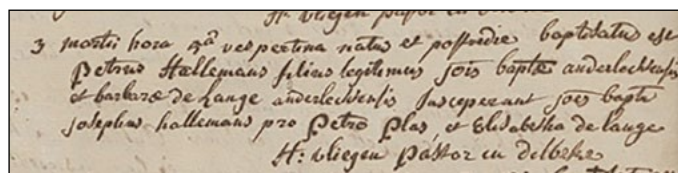 H: vliegen pastor in
3 martii hora 5â vespertina natus et postridie baptisatus est
Petrus Hallemans filius legitimus jois baptæ anderlechtensis
et barbaræ de Lange anderlechtensis susceperunt joes bapta
josephus hallemans pro Petro Plas, et Elisabetha de lange
H: vliegen Pastor in dilbeke